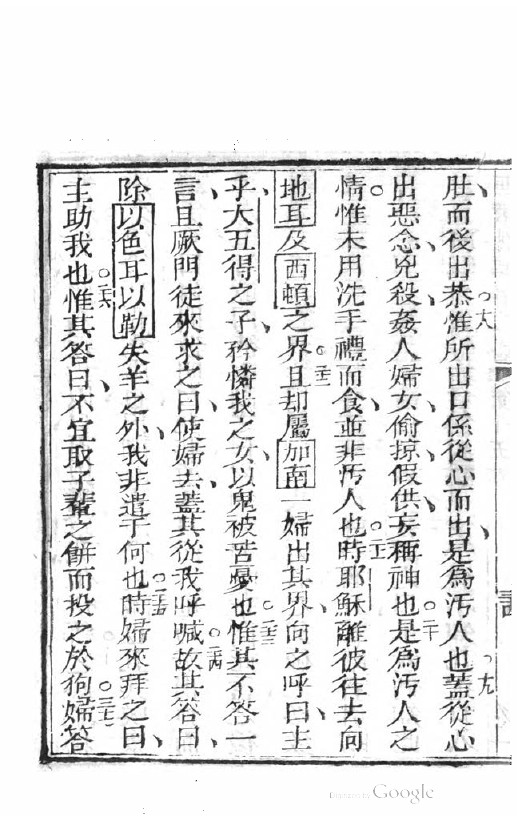 肚而後出恭惟所出口係從心而出是爲汚人也蓋從心
出惡念兇殺姦人婦女偷掠假供妄稱神也是爲汚人之
情惟未用洗手禮而食並非汚人也時耶穌離彼往去向
地耳及西頓之界且却屬加南一婦出其界向之呼曰主
乎大五得之子矜憐我之女以鬼被苦憂也惟其不答一
言且厥門徒來求之曰使婦去蓋其從我呼喊故其答曰
除以色耳以勒失羊之外我非遣于何也時婦來拜之曰
主助我也惟其答曰不宜取子輩之餅而投之於狗婦答
Google